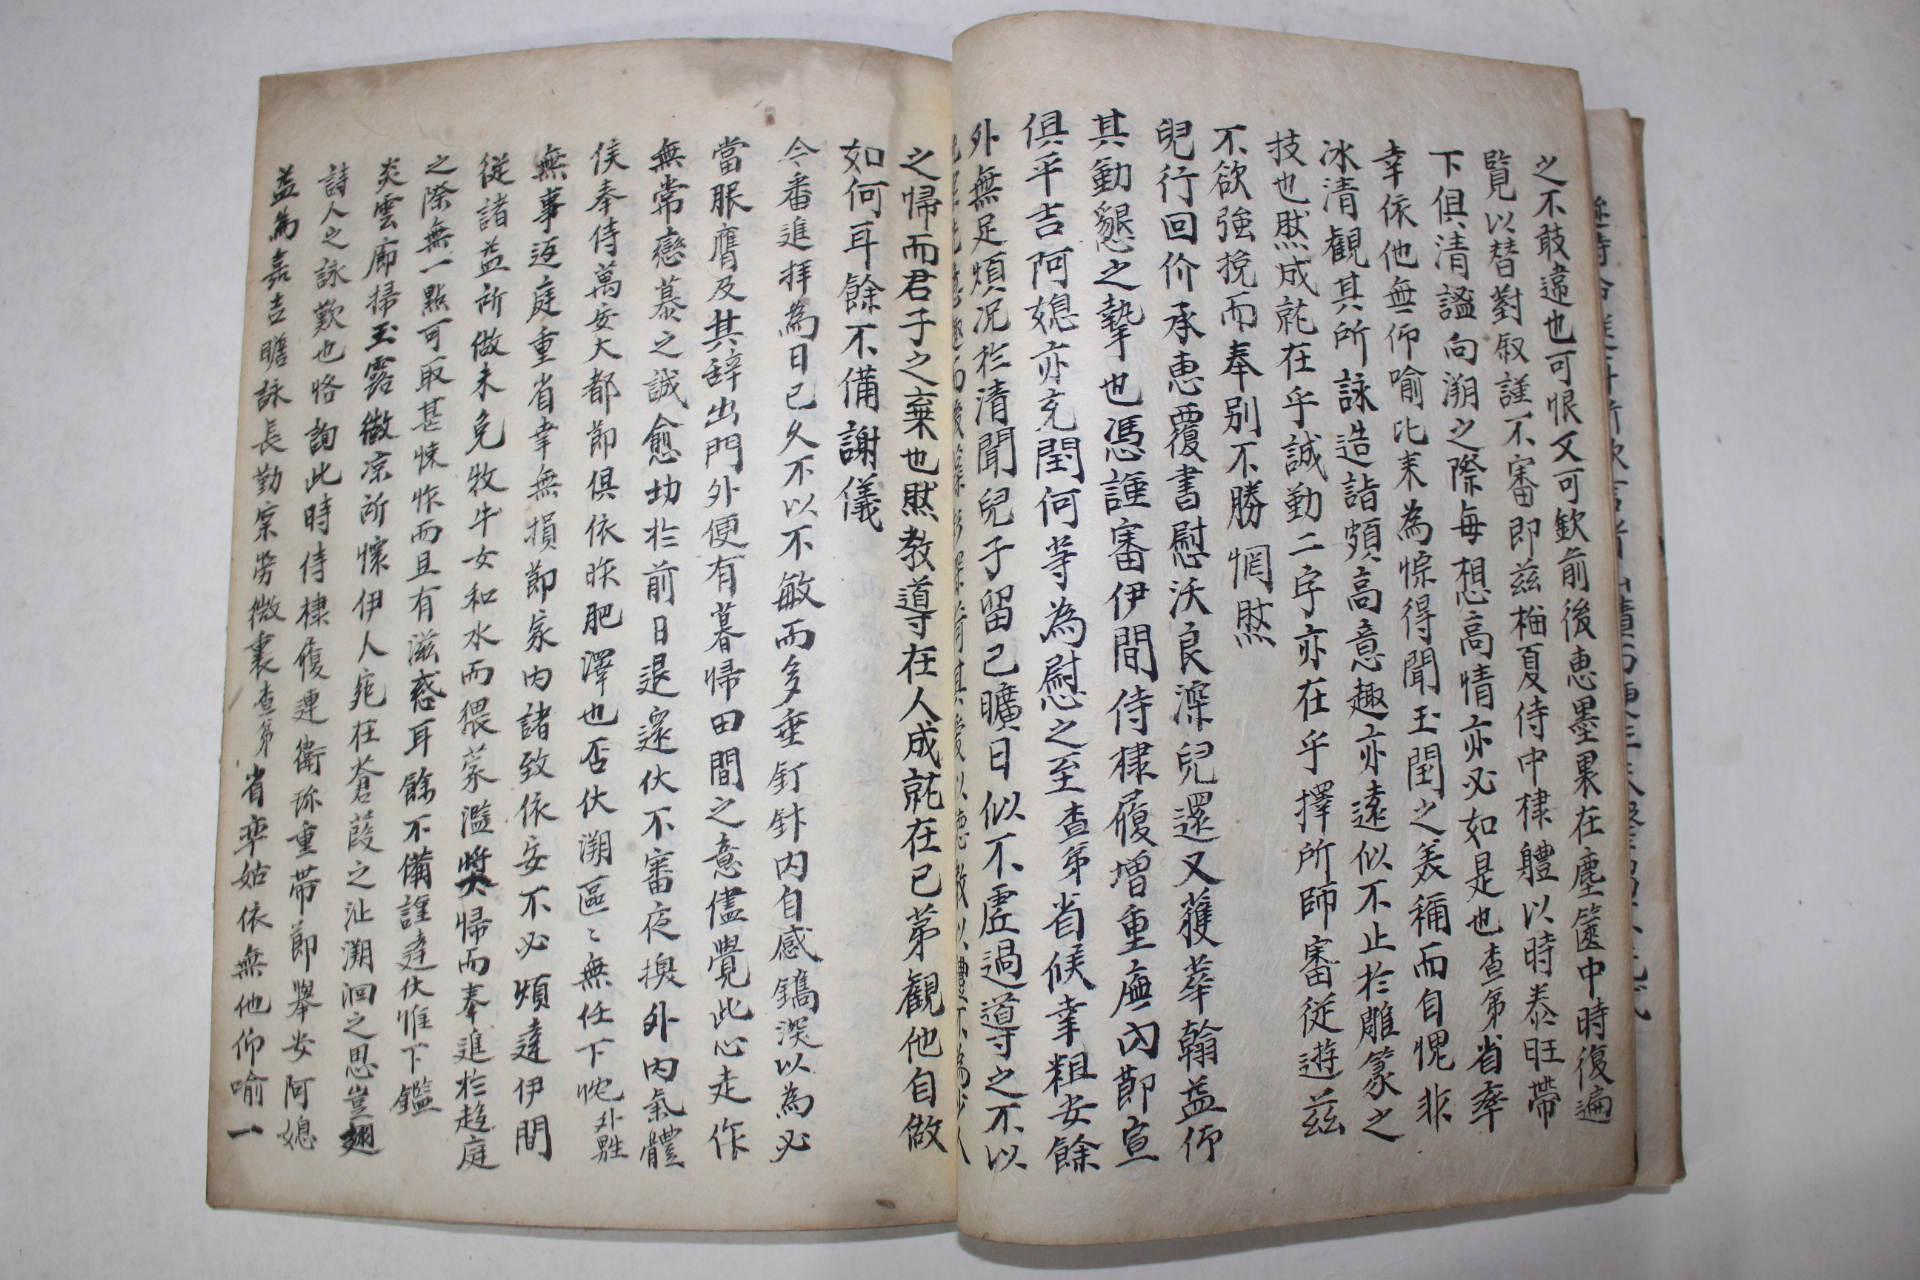 之不敢違也可恨又可欽前後惠墨累在塵篋中時復遍
覽以替對叙謹不審即玆梅夏侍中棣體以時泰旺帶
下俱淸謐向溯之際每想高情亦必如是也査弟省率
幸依他無仰喩比来為悰得聞玉閏之美稱而自愧非
冰淸觀其所詠造詣頗高意趣亦遠似不止於雕篆之
技也然成就在乎誠勤二字亦在乎擇所師審從遊玆
不欲強挽而奉別不勝惘然
兒行回价承惠覆書慰沃良深兒還又獲華翰益仰
其勤懇之摯也憑謹審伊間侍棣履增重廡內節宣
俱平吉阿媳亦充閏何等為慰之至査弟省候幸粗安餘
外無足煩况於淸聞兒子留已曠日似不虛過導之不以
之歸而君子之棄也然敎導在人成就在己苐觀他自做
如何耳餘不備謝儀
今番進拜為日已久不以不敏而多垂釘𨥧內自感鐫深以為必
當服膺及其辭出門外便有暮歸田間之意儘覺此心走作
無常戀慕之誠愈切於前日退還伏不審夜換外內氣體
侯奉侍萬安大都節俱依昨肥澤也否伏溯區〻無任下忱外甥
無事返庭重省幸無損節家內諸致依安不必煩達伊間
從諸益所做未免牧牛女和水而猥蒙濫奬歸而奉進於趍庭
之際無一點可取甚悚怍而且有滋惑耳餘不備謹達伏惟下鑑
炎雲廊掃玉露微凉所懷伊人宛在蒼葭之沚溯洄之思豈翅
詩人之詠歎也恪詢此時侍棣履連衛珎重帶節擧安阿媳
益為嘉吉瞻詠長勤寀勞微裏査弟省率姑依無他仰喩一